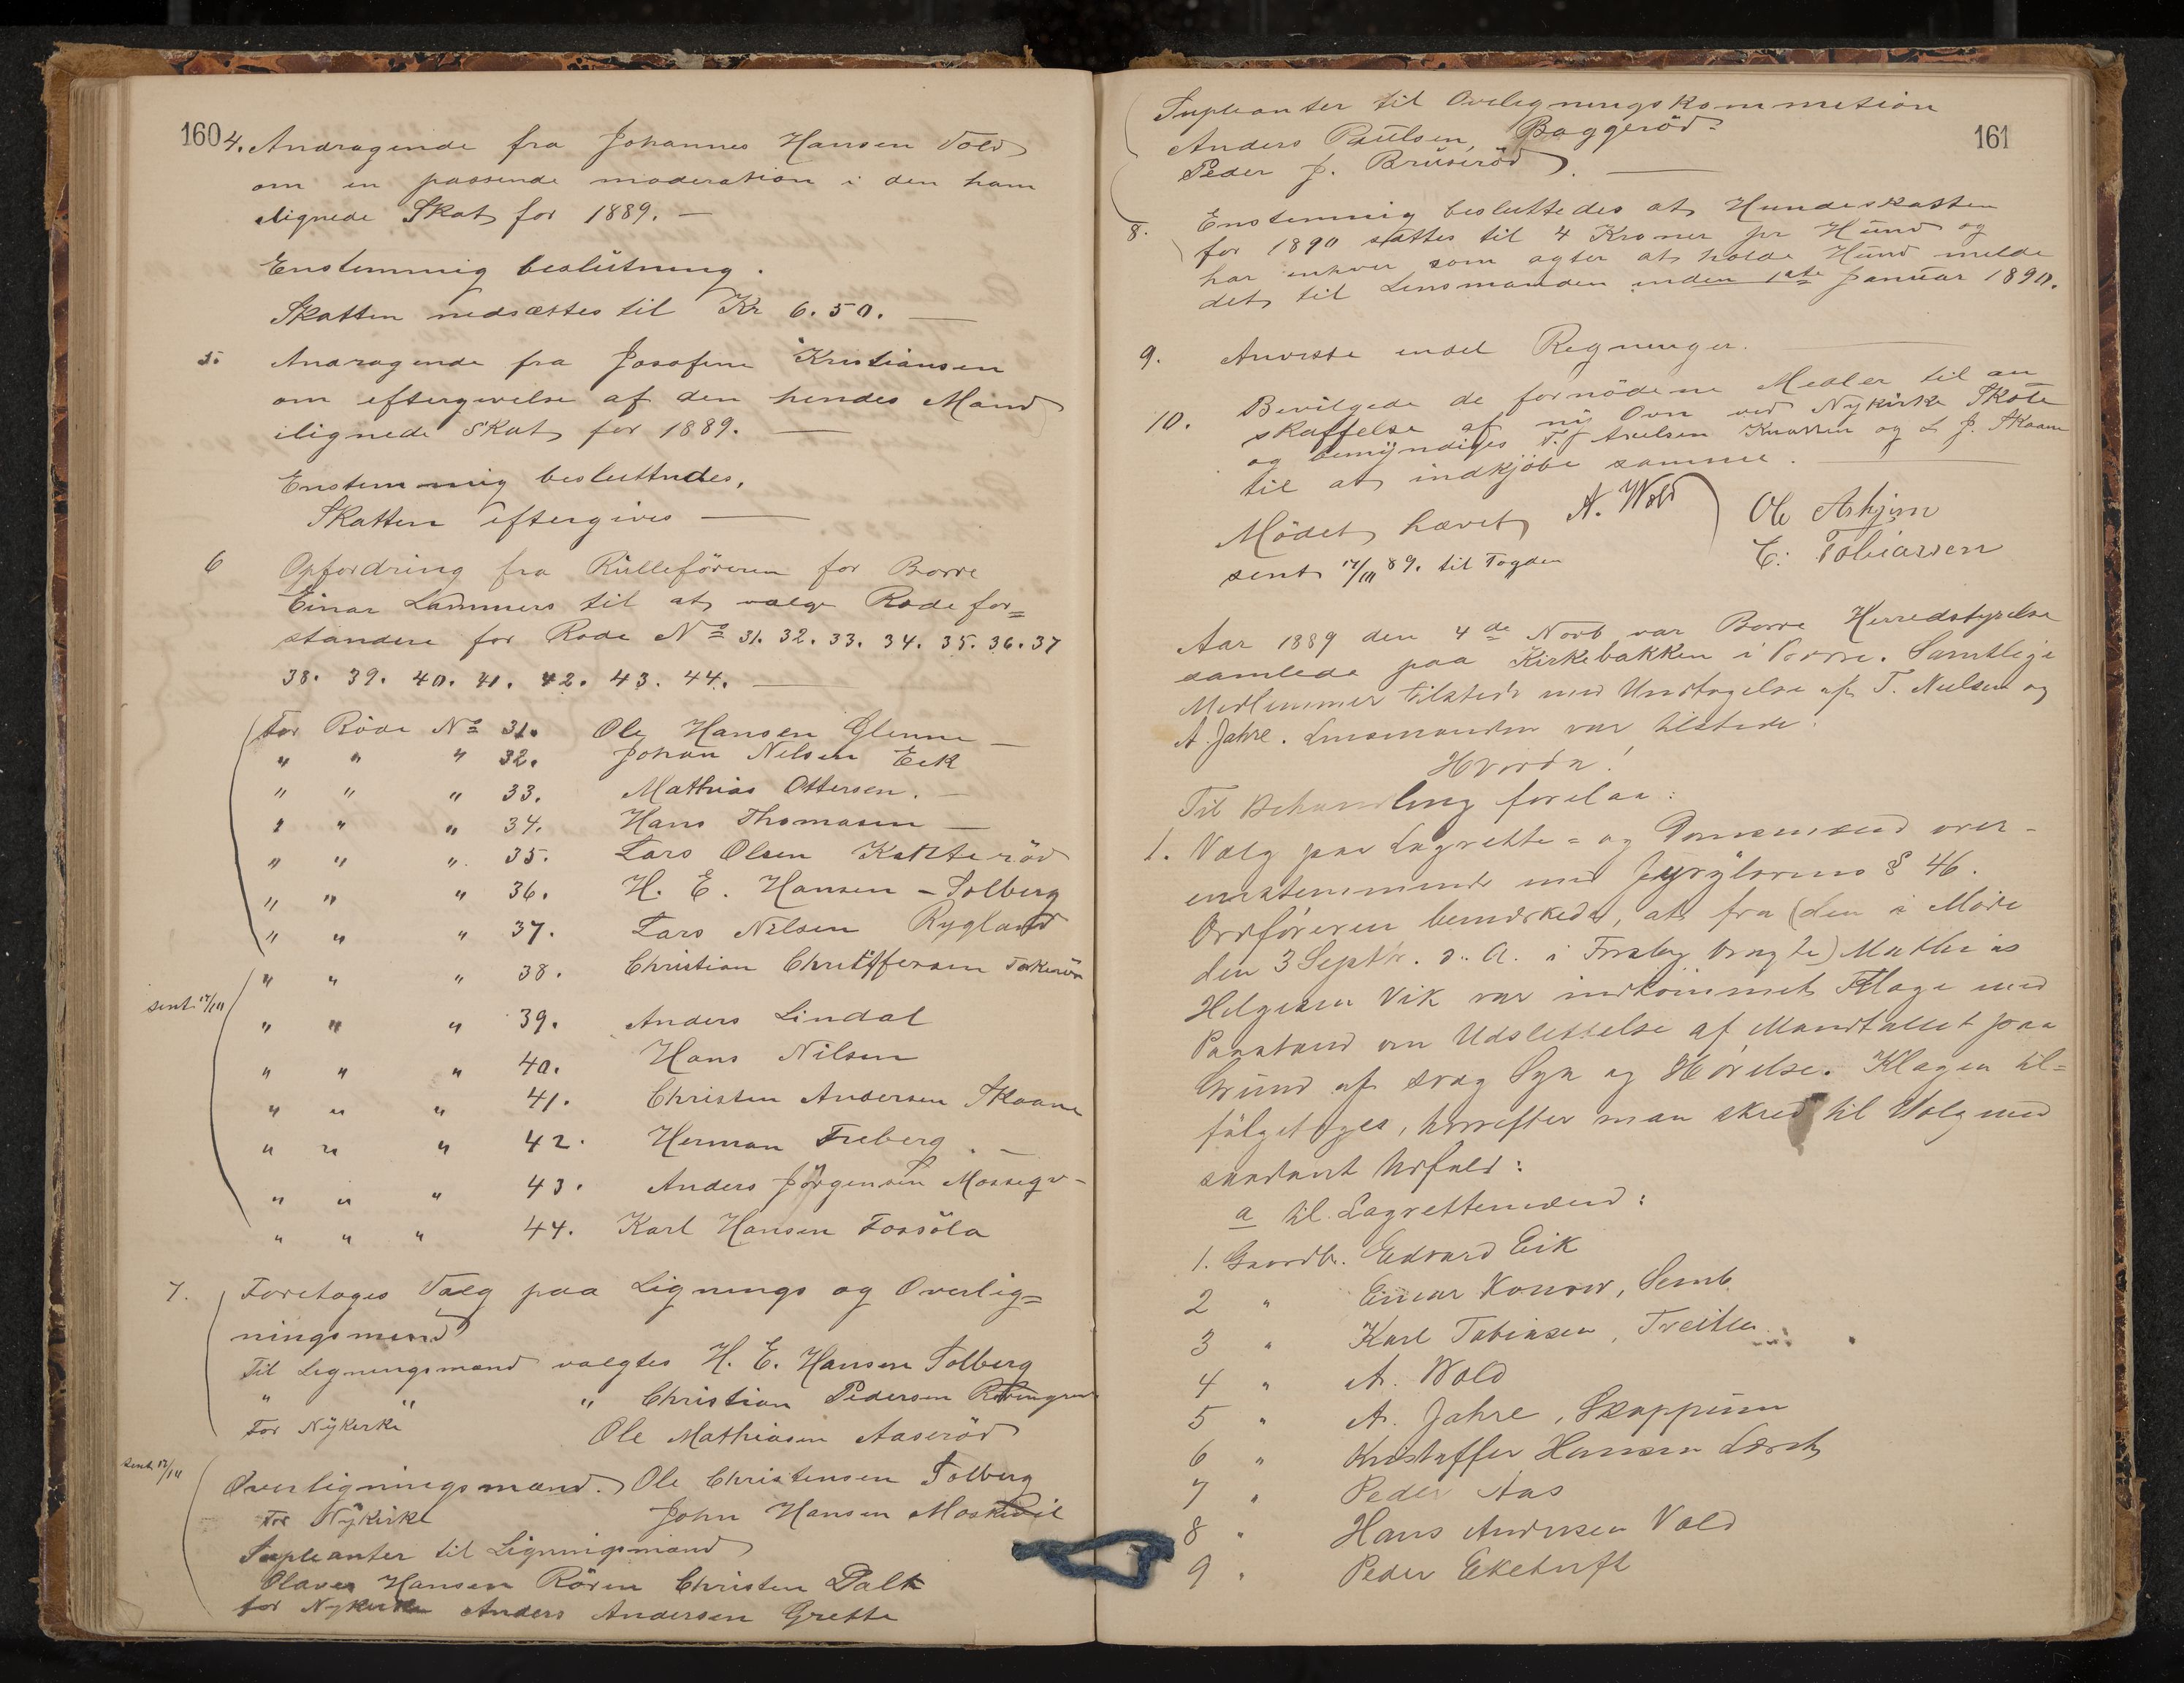 160
4. Andragende fra Johannes Hansen Vold
om en passende moderation i den ham
ilignede Skat for 1889. —
Enstemmig beslutning.
Skatten nedsættes til Kr 6.50. —
5. Andragende fra Josefine Kristiansen
om eftergivelse af den hendes Mand
ilignede Skat for 1889. —
Enstemmig besluttedes,
Skatten eftergives —
6 Opfordring fra Rulleföreren for Borre
Einar Lammers til at vælge Rodefor=
standere for Rode No 31. 32. 33. 34. 35. 36. 37
38. 39. 40. 41. 42. 43. 44. —
For Rode No 31. Ole Hansen Glenne —
" " " 32. Johan Nilsen Eek
" " " 33. Mathias Ottersen. —
" " " 34. Hans Thomasen —
" " " 35. Lars Olsen
" " " 36. H. E. Hansen - Solberg
" " " 37. Lars Nilsen Rygland
" " " 38. Christian Christoffersen
sent 17/10
" " " 39. Anders Lindal
" " " 40. Hans Nilsen
" " " 41. Christen Andersen Skaane
" " " 42. Herman Freberg
" " " 43. Anders Jörgensen
" " " 44. Karl Hansen Fossöla
7. Foretoges Valg paa Lignings og Overlig=
ningsmend
Til Ligningsmænd valgtes H. E. Hansen Solberg
" " " Christian Pedersen
For Nykirke Ole Mathiasen Aaseröd
sent 17/10
Overligningsmænd. Ole Christensen Solberg
For Nykirke John Hansen Moskvil
Supleanter til Ligningsmænd
Olaves Hansen Rören Christen Dalt
for Nykirke Anders Andersen Grette
161
Supleanter til Overligningskommetion
Anders Paulsen, Baggeröd
Peder J. Bruseröd. —
8. Enstemmig besluttedes at Hundeskatten
for 1890 sættes til 4 Kroner pr Hund og
har enhver som agter at holde Hund melde
det til Lensmanden inden 1ste Januar 1890.
9. Anviste endel Regninger. —
10. Bevilgede de fornödene Medler til an
skaffelse af ny Ovn ved Nykirke Skole
og bemyndiges T. J. Axelsen Knatten og L J. Skaane
til at indkjöbe samme. —
Mödet hævet A. Wold Ole Askjem
sent 17/10 89. til Fogden E. Tobiassen
Aar 1889 den 4de Novb var Borre Herredstyrelse
samlede paa Kirkebakken i Borre. Samtlige
Medlemmer tilstede med Undtagelse af T. Nielsen og
A. Jahre. Lensmanden var tilstede.
Hvorda!
Til Behandling forelaa:
1. Valg paa Lagrette= og Domsmænd over-
ensstemmende med Jurylovens § 46.
Ordföreren bemærkede, at fra (den i Möde
den 3 Septbr. d. A. i Forslag bragte) Mathias
Helgesen Vik var indkommet Klage med
Paastand om Udslettelse af Mandtallet paa
Grund af svag Syn og Hörelse. Klagen til=
fölgetoges, hvorefter man skred til Valg med
saadant Udfald:
a til Lagrettemænd:
1. Gaardbr. Edvard Eik
2 " Einar Konow, Semb
3 " Karl Tobiasen, Freitlen
4 " A. Wold
5 " A. Jahre, Skoppum
6 " Kristoffer Hansen
7 " Peder Aas
8 " Hans Andersen Vold
9 " Peder Eketuft